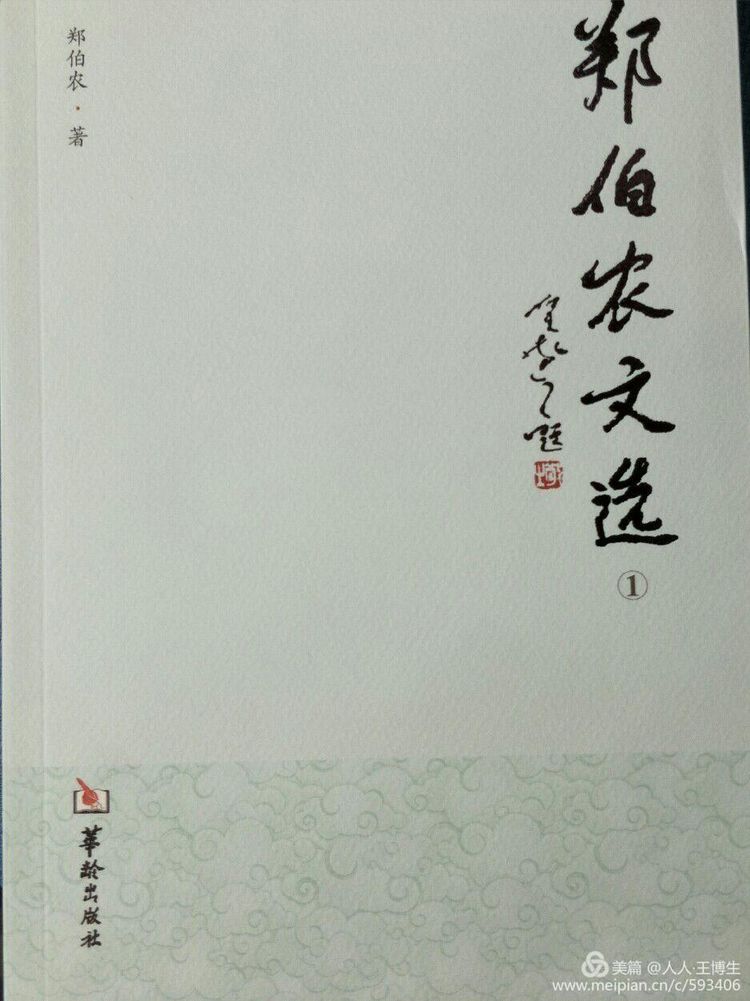 郑伯农文选
①
题
郑伯农·著
華龄出版社
美篇 @人人·王博生
www.meipian.cn/c/593406